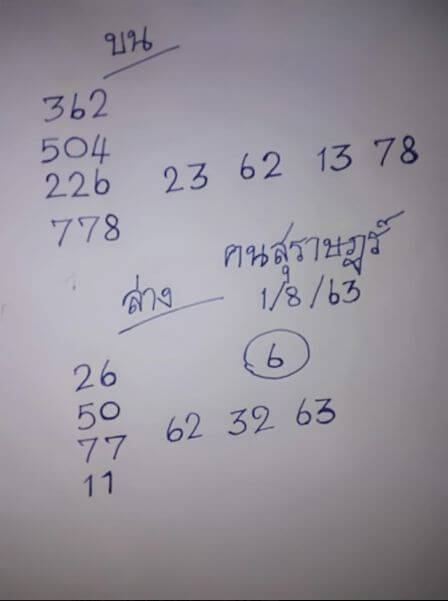 บน
362
504
226 23 62 13 78
778
คนสุราษฎร์
ล่าง 1/8/63
26 6
50
77 62 32 63
11